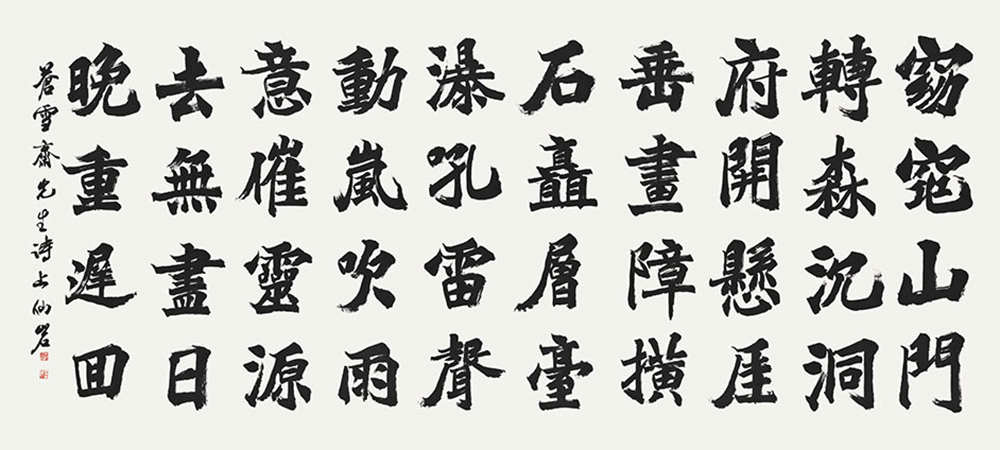 窈窕山門
轉森沉洞
府開懸崖
垂畫障橫
石矗層臺
瀑吼雷聲
動嵐吹雨
意催靈源
去無盡日
晚重遲回
蒼雪齋先生诗上仙岩